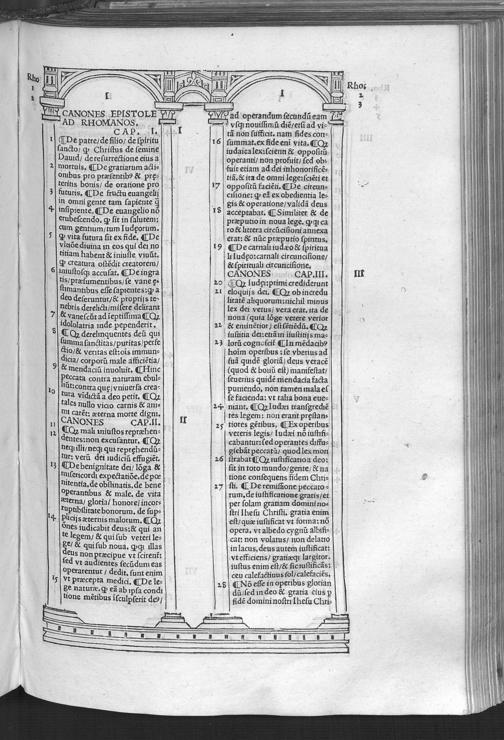 Rho
1
2
I
I
Rho:
2
3
CANONES EPISTOLE
AD RHOMANOS.
CAP. I.
I
1 ¶De patre/de filio/de spiritu
sancto/ ꝙ Christus de semine
Dauid/de resurrectione eius a
2 mortuis. ¶De gratiarum acti-
onibus pro præsentibꝰ & præ-
teritis bonis/ de oratione pro
3 futuris. ¶De fructu euangelij
in omni gente tam sapiente ꝗ̃
4 insipiente. ¶De euangelio nõ
erubescendo. ꝙ sit in salutem:
cum gentium/tum Iudęorum.
5 ꝙ vita futura sit ex fide. ¶De
visiõe diuina in eos qui dei no
titiam habent & iniuste viuũt.
ꝙ creatura ostẽdit creatorem/
6 iniustosqꝫ accusat. ¶De ingra
tis/præsumentibus/se vane ę-
stimantibus esse sapientes: ꝙ a
deo deseruntur/& proprijs te-
nebris derelicti/misere delirant
7 & vanescũt ad septissima ¶Qꝫ
idololatria inde pependerit.
8 ¶Qꝫ derelinquentes deũ qui
summa sanctitas/puritas/perfe
ctio/& veritas est: ois immun-
dicia/ corporũ male afficiẽtia/
9 & mendaciũ inuoluit. ¶Hinc
peccata contra naturam ebul-
liũt: contra quę/vniuersa crea-
10 tura vidictã a deo petit. ¶Qꝫ
tales nullo vicio carnis & ani-
mi carẽt: æterna morte digni.
CANONES CAP.II.
II
11 ¶Qꝫ mali iniustos reprehen/
12 dentes: non excusantur. ¶Qꝫ
neqꝫ illi/neqꝫ qui reprehendũ-
tur: verũ dei iudiciũ effugiẽt.
13 ¶De benignitate dei/ lõga &
misericordi expectatiõe. de pœ
nitentia. de obstinatis. de bene
operantibus & male. de vita
æterna/ gloria/ honore/ incor-
ruptibilitate bonorum. de sup-
14 plicijs æternis malorum. ¶Qꝫ
omnes iudicabit deus: & qui an
te legem/ & qui sub veteri le-
ge/ & qui sub noua. ꝙ ꝗ illas
deus non præcipue vt scirent:
sed vt audientes secũdum eas
operarentur / dedit. sunt enim
15 vt præcepta medici. ¶De le-
ge naturæ. ꝙ eã ab ipsa condi
tione mẽtibus isculpserit deꝰ/
ad operandum secundũ eam
vsqꝫ nouissimũ diẽ/etsi ad vi-
tã non sufficit. nam fides con-
16 summat. ex fide eni vita. ¶Qꝫ
iudaica lex/scientẽ & oppositũ
operanti/ non profuit/ sed ob-
fuit etiam ad dei inhonorificẽ-
tiã, & ita de omni lege/sciẽti et
17 oppositũ faciẽti. ¶De circun-
cisione: ꝙ ea ex obedientia le-
gis & operatione/ valida deus
18 acceptabat. ¶Similiter & de
præputio in noua lege. ꝙ ꝗ ca
ro & littera circũcisioni annexa
erat: & nũc præputio spiritus.
19 ¶De carnali iudæo & spiritua
li Iudęo: carnali circuncisione,
& spirituali circuncisione.
CANONES CAP.III.
III
20 ¶Qꝫ Iudęi: primi crediderunt
21 eloquijs dei. ¶Qꝫ ob incredu
litatẽ aliquorum: nichil minus
lex dei vetus/ vera erat. ita de
noua/ quia lõge vetere verior
22 & euincẽtior/ est sẽtiẽdũ. ¶Qꝫ
iustitia dei: etiã in iniustis/ ma-
23 lorũ cognoscit̃ ¶In mẽdacib9
hoim operibus: se vberius ad
suã quidẽ gloriã: deus veracẽ
(quod & bonũ est) manifestat/
seuerius quidẽ mendacia facta
puniendo. non tamen mala eſ-
se facienda: vt talia bona eue-
24 niant. ¶Qꝫ Iudæi transgrediẽ
tes legem: non erant prestan-
25 tiores gẽtibus. ¶Ex operibus
veteris legis: Iudæi nõ iustifi-
cabantur: sed operantes diffu-
giebãt peccatũ/ quod lex mon
26 strabat ¶Qꝫ iustificatio a deo:
sit in toto mundo/ gente/ & na
tione consequens fidem Chri-
27 sti. ¶De remissione peccato-
rum, de iustificatione gratis/ et
per solam gratiam domini no-
stri Ihesu Christi. gratia enim
est/ quæ iustificat vt forma: nõ
opera. vt albedo cygnũ albifi-
cat: non volatus/ non delatio
in lacus, deus autem iustificat:
vt efficiens/ gratiæqꝫ largitor.
iustus enim est/ & sic iustificãs:
ceu calefactiuus sol/ calefaciẽs.
28 ¶Nõ esse in operibus glorian
dũ: sed in deo & gratia eius ꝑ
fidẽ domini nostri Ihesu Chri-